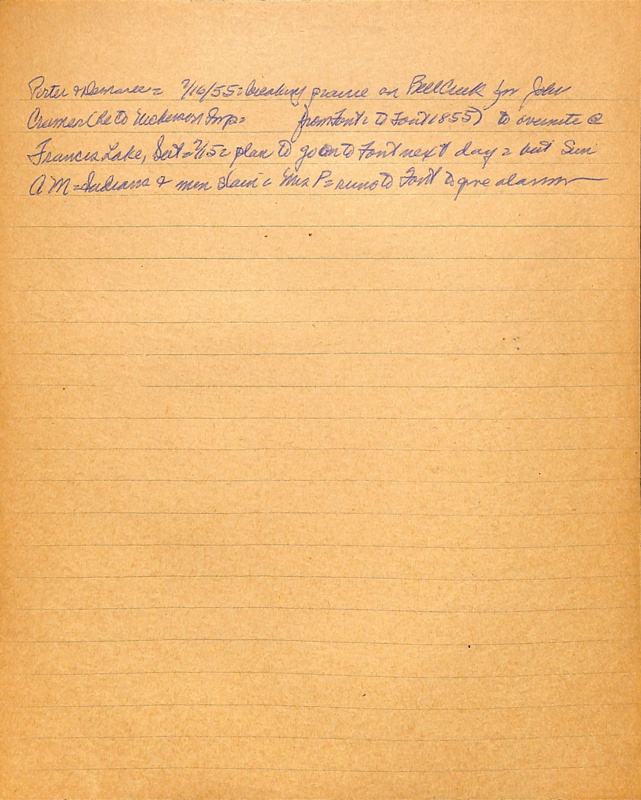 Porter & Demaree = 7/16/55 = breaking prairie on Bell Creek for John
Cramer (he to Nickerson Twp = from Font to Font 1855) to overnite @
Francis Lake, Sat = 7/15 = plan to go on to Font next day = but Sun
A M = Indians & men slain = Mrs P = runs to Font to give alarm —